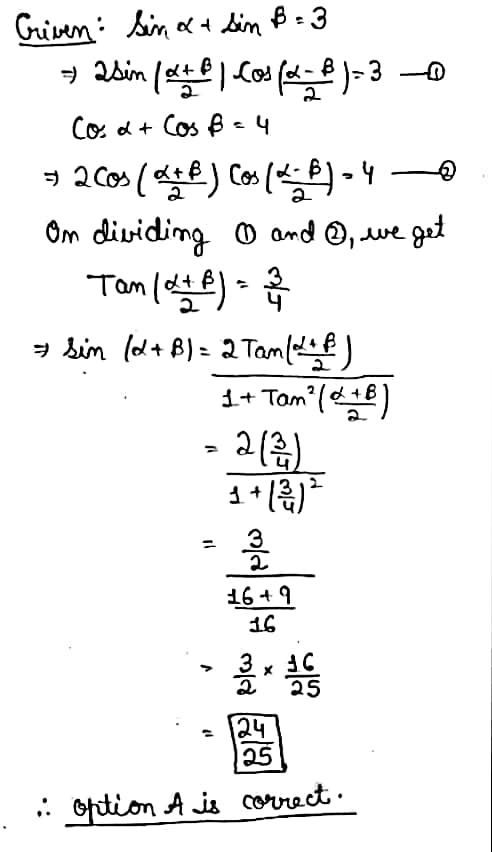 Given: Sin α + Sin β = 3
⇒ 2Sin (α+β/2) Cos (α-β/2) = 3 —①
Cos α + Cos β = 4
⇒ 2Cos (α+β/2) Cos (α-β/2) = 4 —②
On dividing ① and ②, we get
Tan (α+β/2) = 3/4
⇒ Sin (α+β) = 2Tan(α+β/2) / 1+Tan²(α+β/2)
= 2(3/4) / 1+(3/4)²
= 3/2 / 16+9/16
= 3/2 × 16/25
= 24/25
∴ option A is correct.